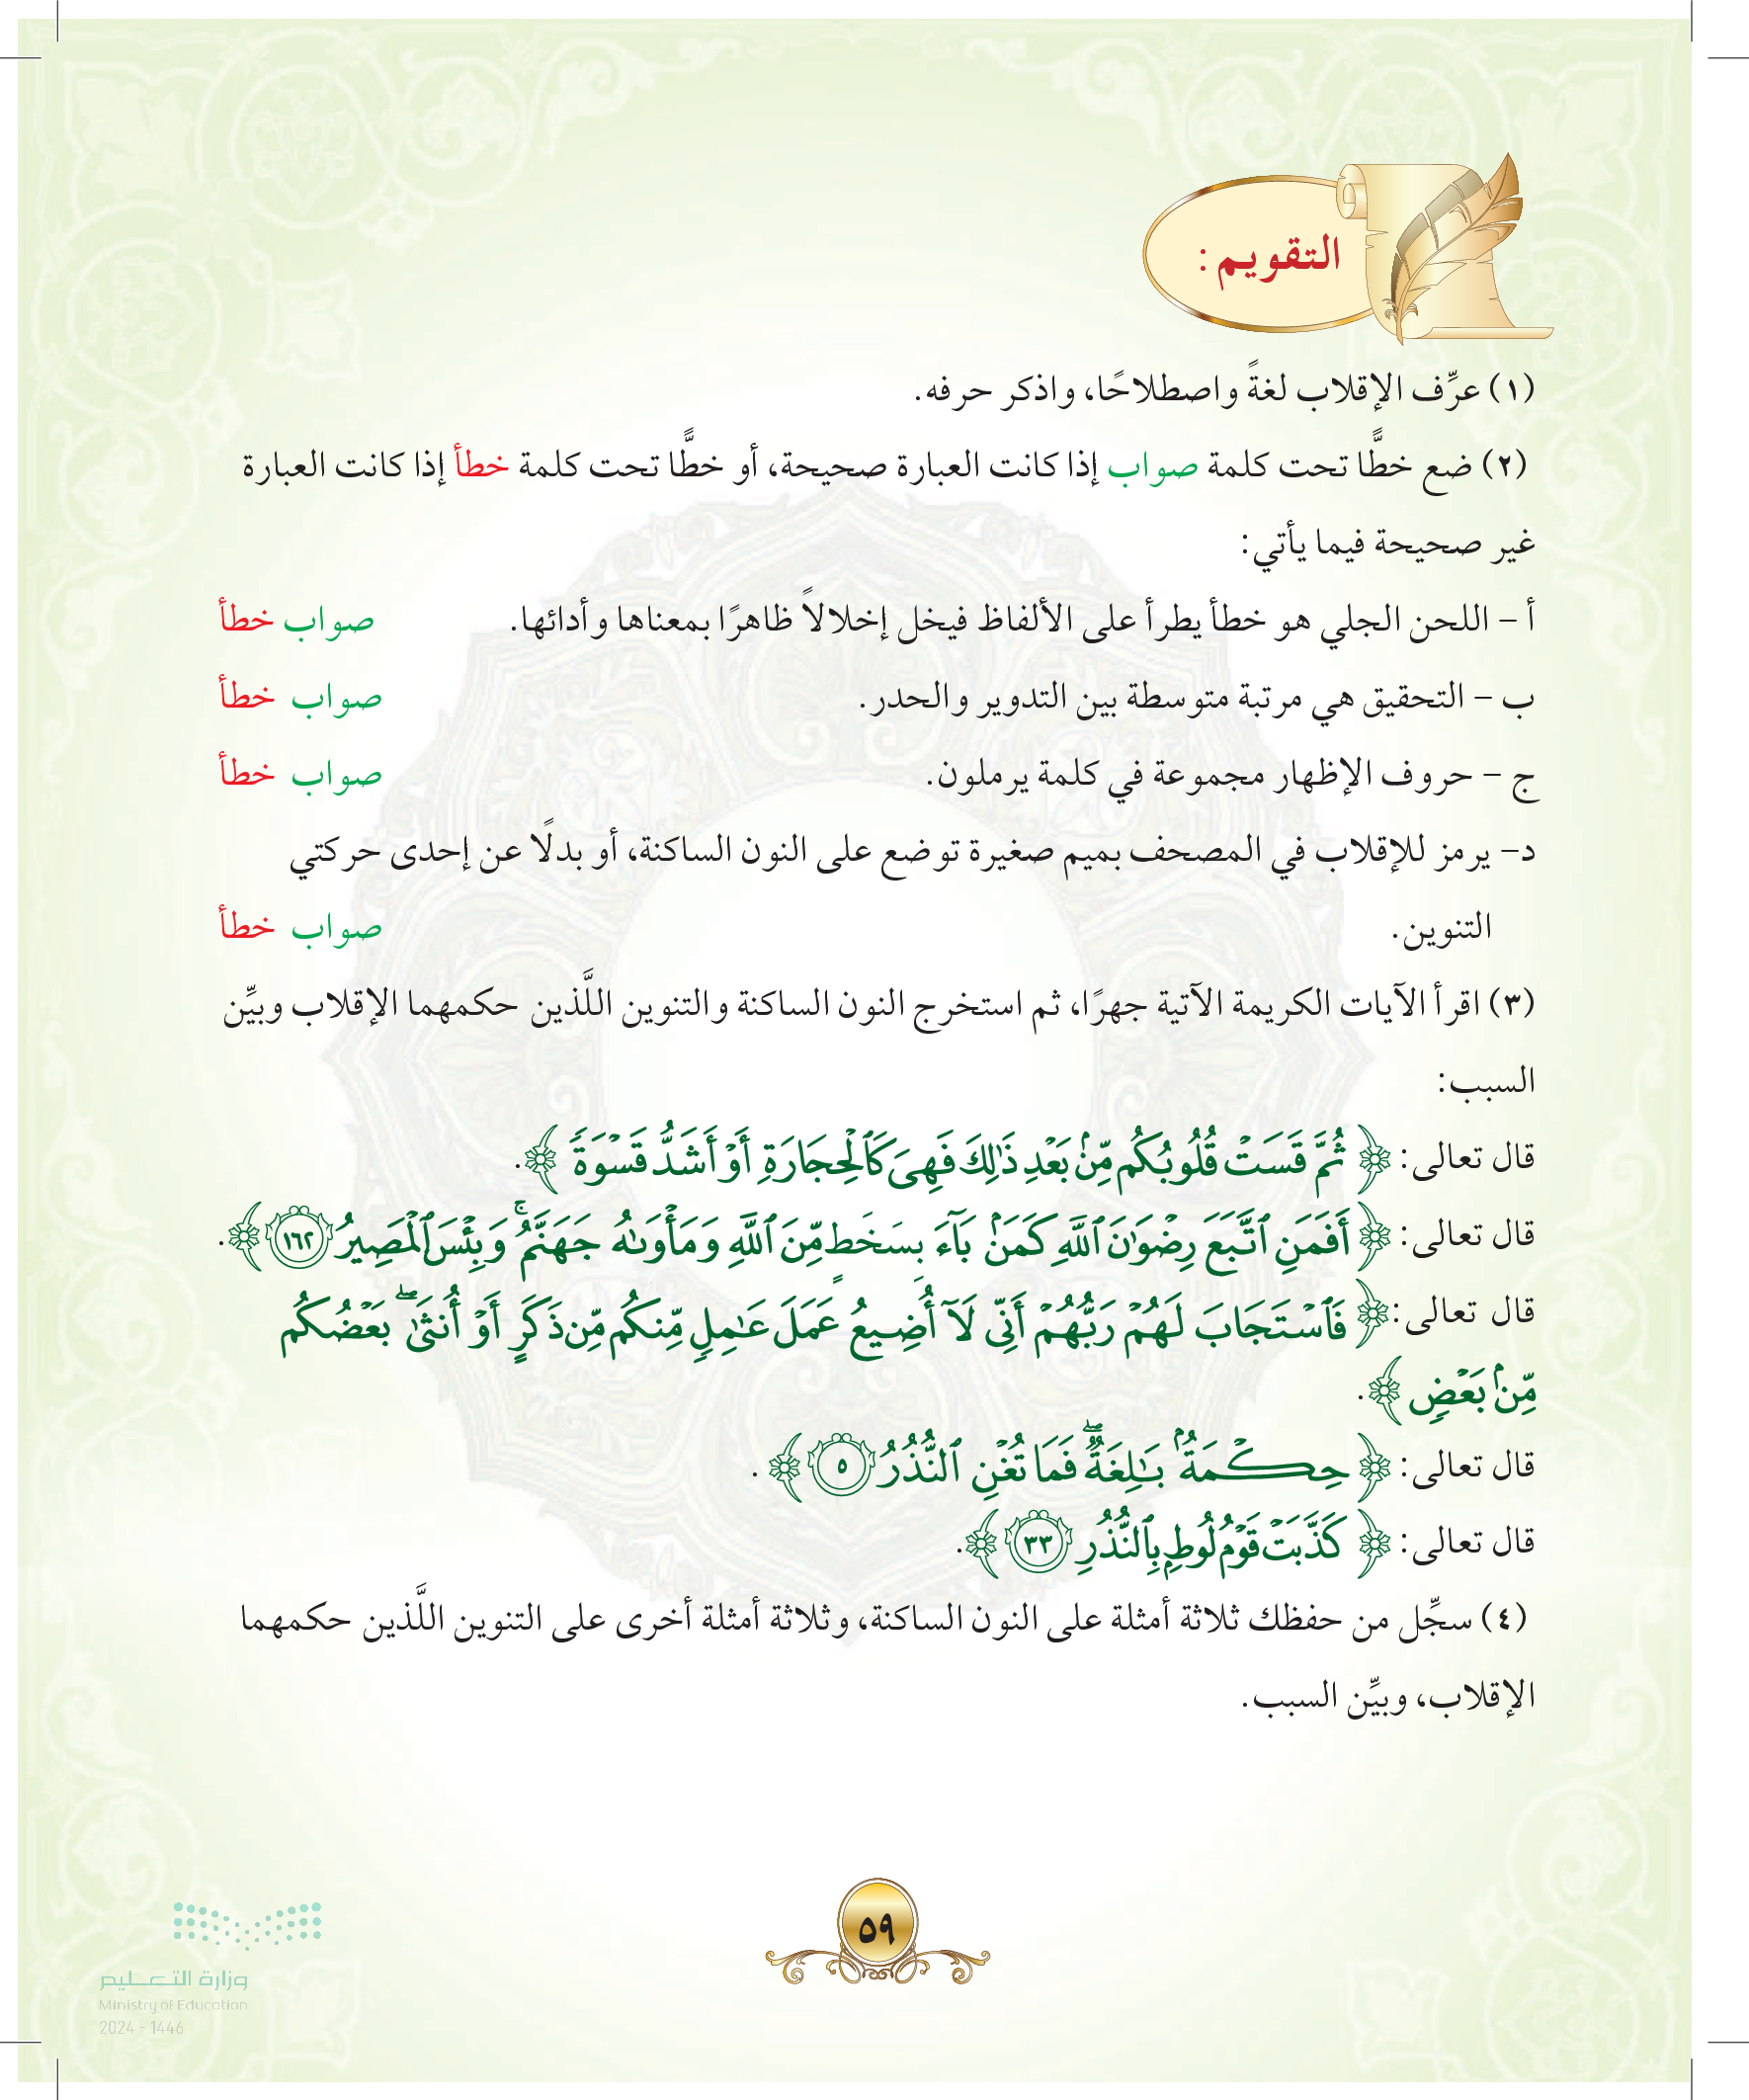 التقويم :
(١) عرِّف الإقلاب لغةً واصطلاحًا، واذكر حرفه.
(٢) ضع خطًّا تحت كلمة صواب إذا كانت العبارة صحيحة، أو خطًّا تحت كلمة خطأ إذا كانت العبارة
غير صحيحة فيما يأتي:
أ – اللحن الجلي هو خطأ يطرأ على الألفاظ فيخل إخلالاً ظاهرًا بمعناها وأدائها. صواب خطأ
ب – التحقيق هي مرتبة متوسطة بين التدوير والحدر. صواب خطأ
ج – حروف الإظهار مجموعة في كلمة يرملون. صواب خطأ
د– يرمز للإقلاب في المصحف بميم صغيرة توضع على النون الساكنة، أو بدلًا عن إحدى حركتي
التنوين. صواب خطأ
(٣) اقرأ الآيات الكريمة الآتية جهرًا، ثم استخرج النون الساكنة والتنوين اللَّذين حكمهما الإقلاب وبيِّن
السبب:
قال تعالى: ﴿ ثُمَّ قَسَتْ قُلُوبُكُم مِّنۢ بَعْدِ ذَٰلِكَ فَهِىَ كَٱلْحِجَارَةِ أَوْ أَشَدُّ قَسْوَةً ﴾.
قال تعالى: ﴿ أَفَمَنِ ٱتَّبَعَ رِضْوَٰنَ ٱللَّهِ كَمَنۢ بَآءَ بِسَخَطٍ مِّنَ ٱللَّهِ وَمَأْوَىٰهُ جَهَنَّمُ ۚ وَبِئْسَ ٱلْمَصِيرُ ١٦٢ ﴾.
قال تعالى: ﴿ فَٱسْتَجَابَ لَهُمْ رَبُّهُمْ أَنِّى لَآ أُضِيعُ عَمَلَ عَٰمِلٍ مِّنكُم مِّن ذَكَرٍ أَوْ أُنثَىٰ ۖ بَعْضُكُم
مِّنۢ بَعْضٍ ﴾.
قال تعالى: ﴿ حِكْمَةٌۢ بَٰلِغَةٌ ۖ فَمَا تُغْنِ ٱلنُّذُرُ ٥ ﴾ .
قال تعالى: ﴿ كَذَّبَتْ قَوْمُ لُوطٍۭ بِٱلنُّذُرِ ٣٣ ﴾.
(٤) سجِّل من حفظك ثلاثة أمثلة على النون الساكنة، وثلاثة أمثلة أخرى على التنوين اللَّذين حكمهما
الإقلاب، وبيِّن السبب.
٥٩
وزارة التعليم
Ministry of Education
2024 - 1446